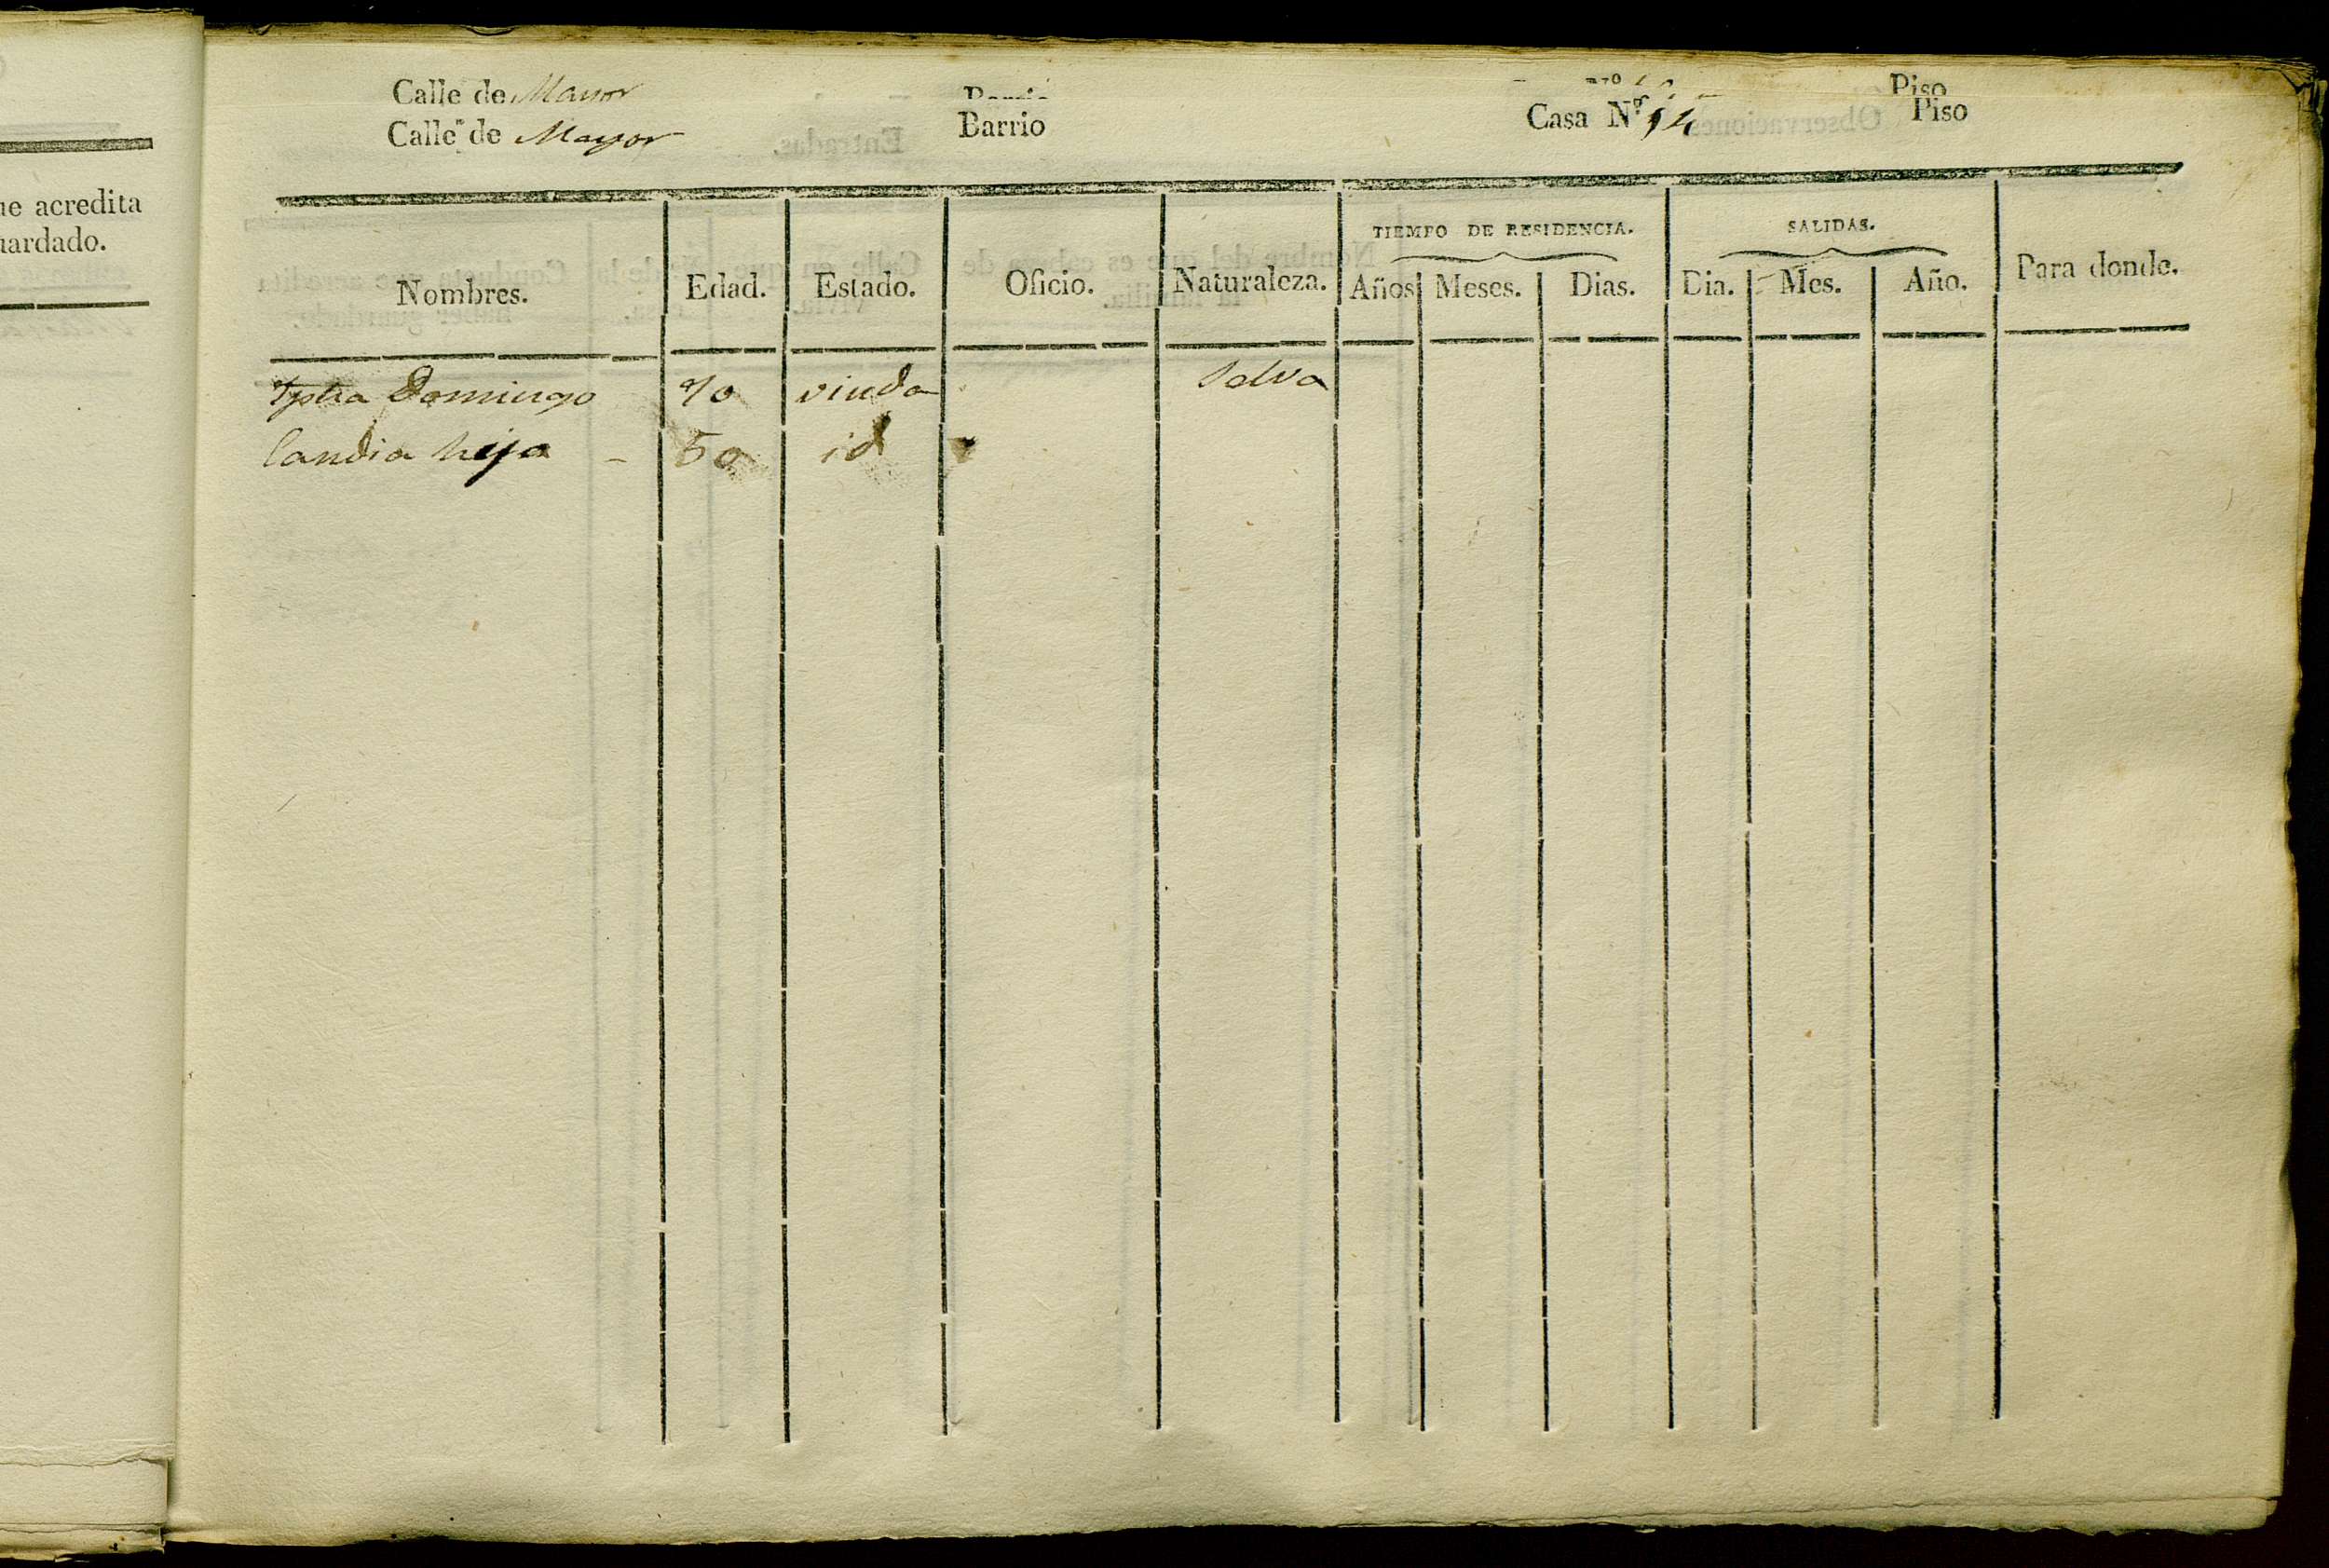 Calle de Mayor
Piso
Calle de Mayor Barrio Casa Nº 14 Piso
ue acredita
uardado.
TIEMPO DE RESIDENCIA. SALIDAS.
Nombres. Edad. Estado. Oficio. Naturaleza. Años Meses. Dias. Dia. Mes. Año. Para donde.
Domingo 70 viuda Selva
Candia hija 50 id